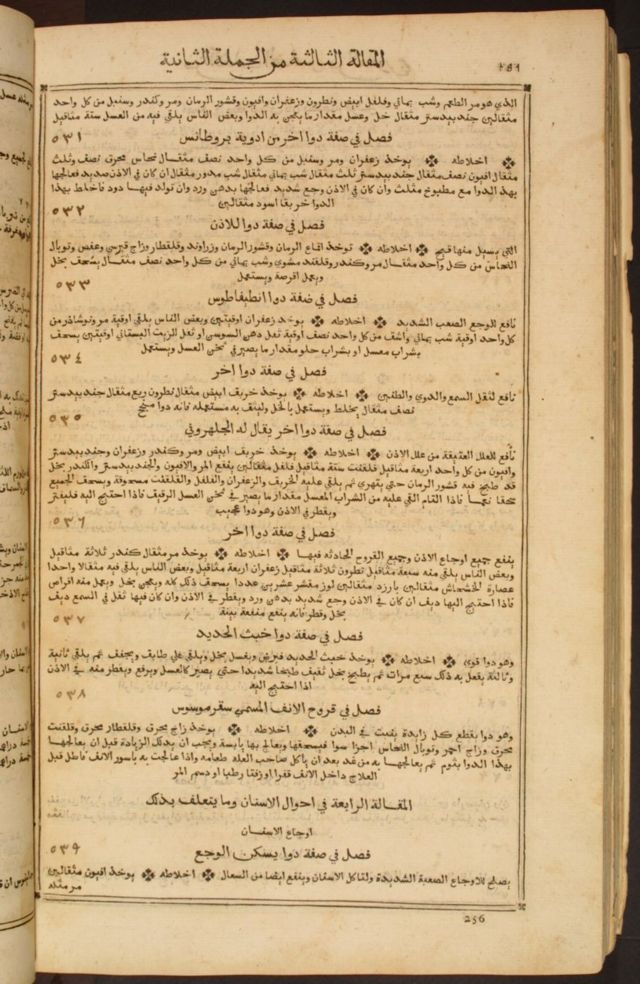 المقالة الثالثة من الجملة الثانية
٢٥٦
الذي هو مر الطعم وشب يماني وفلفل ابيض ونطرون وزعفران وافيون وقشور الرمان ومر وكندر وسنبل من كل واحد
مثقالين جندبيدستر مثقال خل وعسل مقدار ما يعجن به الدوا وبعض الناس يلقي فيه من العسل ستة مثاقيل
فصل في صفة دوا اخر من ادوية بروطانس
٥٣١
اخلاطه يوخذ زعفران ومر وسنبل من كل واحد نصف مثقال نحاس محرق نصف وثلث
مثقال افيون نصف مثقال جندبيدستر ثلث مثقال شب يماني مثقال شب مدور مثقال ان كان في الاذن صديد فعالجها
بهذا الدوا مع مطبوخ مثلث وان كان في الاذن وجع شديد فعالجها بدهن ورد وان تولد فيها دود فاخلط بهذا
الدوا خربقا اسود مثقالين
٥٣٢
فصل في صفة دوا للاذن
التي يسيل منها قيح اخلاطه توخذ اقماع الرمان وقشور الرمان وزراوند وقلقطار وزاج قبرسي وعفص وتوبال
النحاس من كل واحد مثقال مر وكندر وقلقند مشوي وشب يماني من كل واحد نصف مثقال يسحف بخل
ويعمل اقرصة ويستعمل
٥٣٣
فصل في صفة دوا انطيفاطوس
نافع للوجع الصعب الشديد اخلاطه يوخذ زعفران اوقيتين وبعض الناس يلقي اوقية مر ونوشادر من
كل واحد اوقية شب يماني واشف من كل واحد نصف اوقية ثفل دهن السوسن او ثفل الزيت البستاني اوقيتين يسحف
بشراب معسل او بشراب حلو مقدار ما يصير في ثخن العسل ويستعمل
٥٣٤
فصل في صفة دوا اخر
نافع لثقل السمع والدوي والطنين اخلاطه يوخذ خربف ابيض مثقال نطرون ربع مثقال جندبيدستر
نصف مثقال يخلط ويستعمل بالخل وليثف به مستعمله فانه دوا منجح
٥٣٥
فصل في صفة دوا اخر يقال له الجلهروني
نافع للعلل العتيقة من علل الاذن اخلاطه يوخذ خربف ابيض ومر وكندر وزعفران وجندبيدستر
وافيون من كل واحد اربعة مثاقيل قلقنت ستة مثاقيل فلفل مثقالين ينقع المر والافيون والجندبيدستر والكندر بخل
قد طبخ فيه قشور الرمان حتي يتهري ثم يلقي عليه الخربف والزعفران والفلفل والقلقنت مسحوقة ويسحف الجميع
سحقا نعما فاذا التام القي عليه من الشراب المعسل مقدار ما يصير في ثخن العسل الرقيف فاذا احتيج اليه فليفتر
ويقطر في الاذن وهو دوا عجيب
٥٣٦
فصل في صفة دوا اخر
ينفع جميع اوجاع الاذن وجميع القروح الحادثه فيها اخلاطه يوخذ مر مثقال كندر ثلاثة مثاقيل
وبعض الناس يلقي منه سبعة مثاقيل نطرون ثلاثة مثاقيل زعفران اربعة مثاقيل وبعض الناس يلقي فيه مثقالا واحدا
عصارة الخشخاش مثقالين بارزد مثقالين لوز مقشر عشرين عددا يسحف ذلك كله ويعجن بخل ويعمل منه اقراص
فاذا احتيج اليها ديف ان كان في الاذن وجع شديد بدهن ورد ويقطر في الاذن وان كان فيها ثقل في السمع ديف
بخل وقطر فانه ينفع منفعة بينة
٥٣٧
فصل في صفة دوا خبث الحديد
وهو دوا قوي اخلاطه يوخذ خبث الحديد فيرض ويغسل بخل ويلقي علي طابف ويجفف ثم يلقي ثانية
وثالثة يفعل به ذلك سبع مرات ثم يطبخ بخل ثقيف طبخا شديدا حتي يصير كالعسل ويرفع ويقطر منه في الاذن
اذا احتيج اليه
٥٣٨
فصل في قروح الانف المسمي سقرموسوس
وهو دوا يقطع كل زايدة نبتت في البدن اخلاطه يوخذ زاج محرق وقلقطار محرق وقلقنت
محرق وزاج احمر وتوبال النحاس اجزا سوا فيسحقها ويعالج بها يابسة ويجب ان يدلك الزيادة قبل ان يعالجها
بهذا الدوا بثوم ثم يعالجها به من غد بعد ان ياكل صاحب العله طعامه واذا عالجت به باسور الانف فاطل قبل
العلاج داخل الانف قفرا او زفتا رطبا او دسم المر
المقالة الرابعة في احوال الاسنان وما يتعلف بذلك
اوجاع الاسنان
٥٣٩
فصل في صفة دوا يسكن الوجع
يصلح للاوجاع الصعبة الشديدة ولتاكل الاسنان وينفع ايضا من السعال اخلاطه يوخذ افيون مثقالين
مر مثله
256